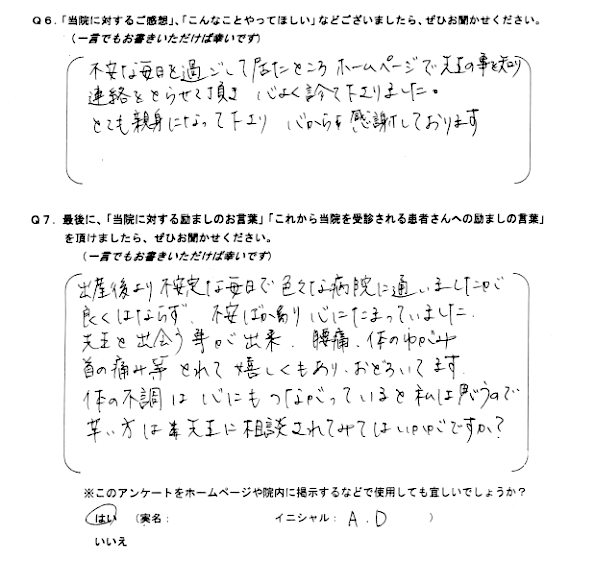 Q6.「当院に対するご感想」、「こんなことやってほしい」などございましたら、ぜひお聞かせください。
(一言でもお書きいただけば幸いです)
不安な毎日を過ごして居たところ ホームページで先生の事を知り
連絡をとらせて頂き 心よく診て下さりました。
とても親身になって下さり 心からも感謝しております
Q7.最後に、「当院に対する励ましのお言葉」「これから当院を受診される患者さんへの励ましの言葉」
を頂けましたら、ぜひお聞かせください。
(一言でもお書きいただけば幸いです)
出産後より不安定な毎日で色々な病院に通いましたが
良くはならず、不安ばかり心にたまっていました。
先生と出会う事が出来、腰痛、体のゆがみ
首の痛み等 とれて嬉しくもあり、おどろいてます。
体の不調は心にもつながっていると私は思うので
辛い方は 先生に相談されてみてはいかがですか?
※このアンケートをホームページや院内に掲示するなどで使用しても宜しいでしょうか?
はい (実名: イニシャル: A.D )
いいえ